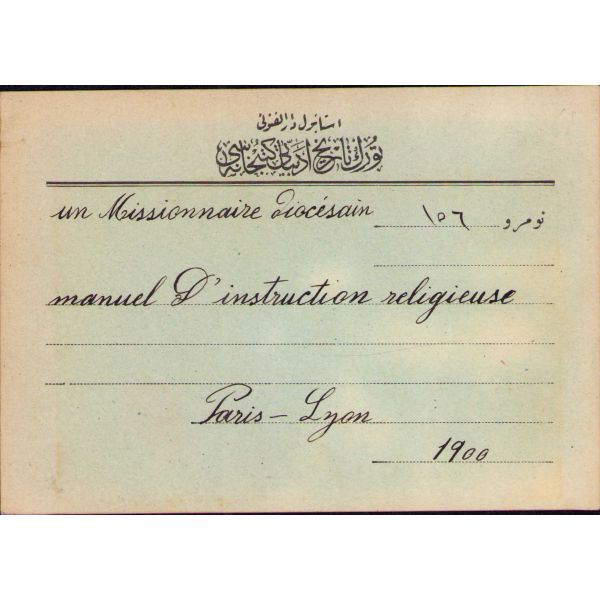 استانبول دار الفنونی
تورك تاريخ ادبياتی كتبخانه سی
un Missionnaire Diocésain
نومرو ١٥٦
manuel D'instruction religieuse
Paris - Lyon
1900